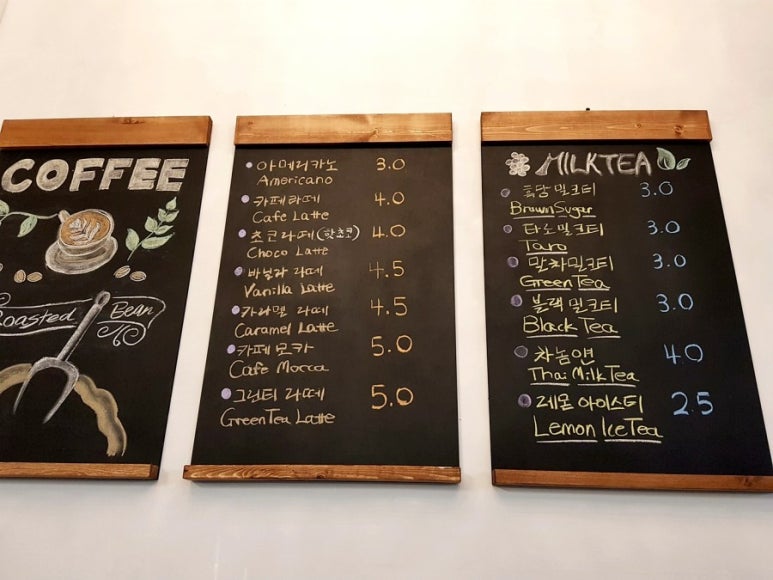 COFFEE
Roasted Bean
아메리카노 3.0
Americano
카페라떼 4.0
Cafe Latte
초코라떼 (핫초코) 4.0
Choco Latte
바닐라 라떼 4.5
Vanilla Latte
카라멜 라떼 4.5
Caramel Latte
카페모카 5.0
Cafe Mocca
그린티 라떼 5.0
GreenTea Latte
MILKTEA
흑당밀크티 3.0
Brown Sugar
타로밀크티 3.0
Taro
말차밀크티 3.0
GreenTea
블랙밀크티 3.0
Black Tea
차놈옌 4.0
Thai Milk Tea
레몬아이스티 2.5
Lemon Ice Tea